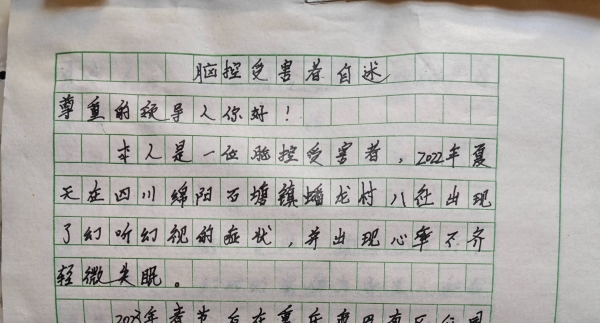 脑控受害者自述
尊重的领导人你好！
本人是一位脑控受害者，2022年夏
天在四川绵阳石塘镇蟠龙村八社出现
了幻听幻视的症状，并出现心率不齐
轻微失眠。
2023年春节后在重庆